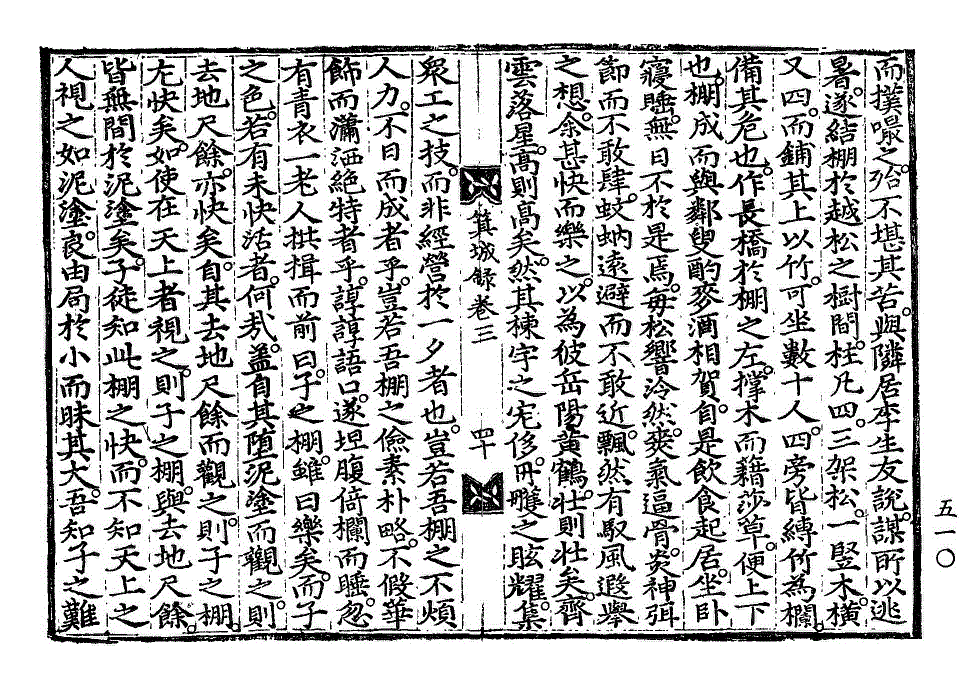 而撲嘬之。殆不堪其苦。與隣居李生友說。謀所以逃
暑。遂結棚於越松之樹間。柱凡四。三架松。一竪木。橫
又四。而鋪其上以竹。可坐數十人。四旁皆縛竹爲欄。
備其危也。作長橋於棚之左。撑木而藉莎草。便上下
也。棚成而與鄰叟酌麥酒相賀。自是飮食起居。坐卧
寢睡。無日不於是焉。每松響泠然。爽氣逼骨。炎神弭
節而不敢肆。蚊蚋遠避而不敢近。飄然有馭風遐擧
之想。余甚快而樂之。以為彼岳陽黃鶴。壯則壯矣。齊
雲落星。高則高矣。然其棟宇之宏侈。丹雘之眩耀。集
箕城錄卷三
四十
衆工之技。而非經營於一夕者也。豈若吾棚之不煩
人力。不日而成者乎。豈若吾棚之儉素朴略。不假華
飾而瀟洒絶特者乎。諄諄語口。遂坦腹倚欄而睡。忽
有青衣一老人拱揖而前曰。子之棚。雖曰樂矣。而子
之色。若有未快活者。何㢤。盖自其墮泥塗而觀之。則
去地尺餘。亦快矣。自其去地尺餘而觀之。則子之棚。
尤快矣。如使在天上者視之。則子之棚。與去地尺餘。
皆無間於泥塗矣。子徒知此棚之快。而不知天上之
人視之如泥塗。良由局於小而昧其大。吾知子之難
五一〇